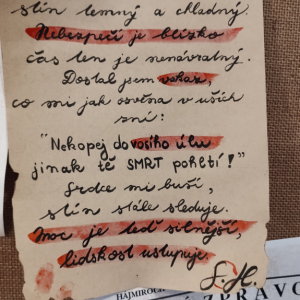 stín temný a chladný.
Nebezpečí je blízko
čas ten je nenávratný.
Dostal jsem vzkaz,
co mi jak ozvěna v uších
zní:
"Nekopej do vosího úlu
jinak tě SMRT pohltí!"
Srdce mi buší,
stín stále sleduje.
Moc je teď silnější,
lidskost ustupuje.
S.H.
HAJMIROCH
ZPRAVO